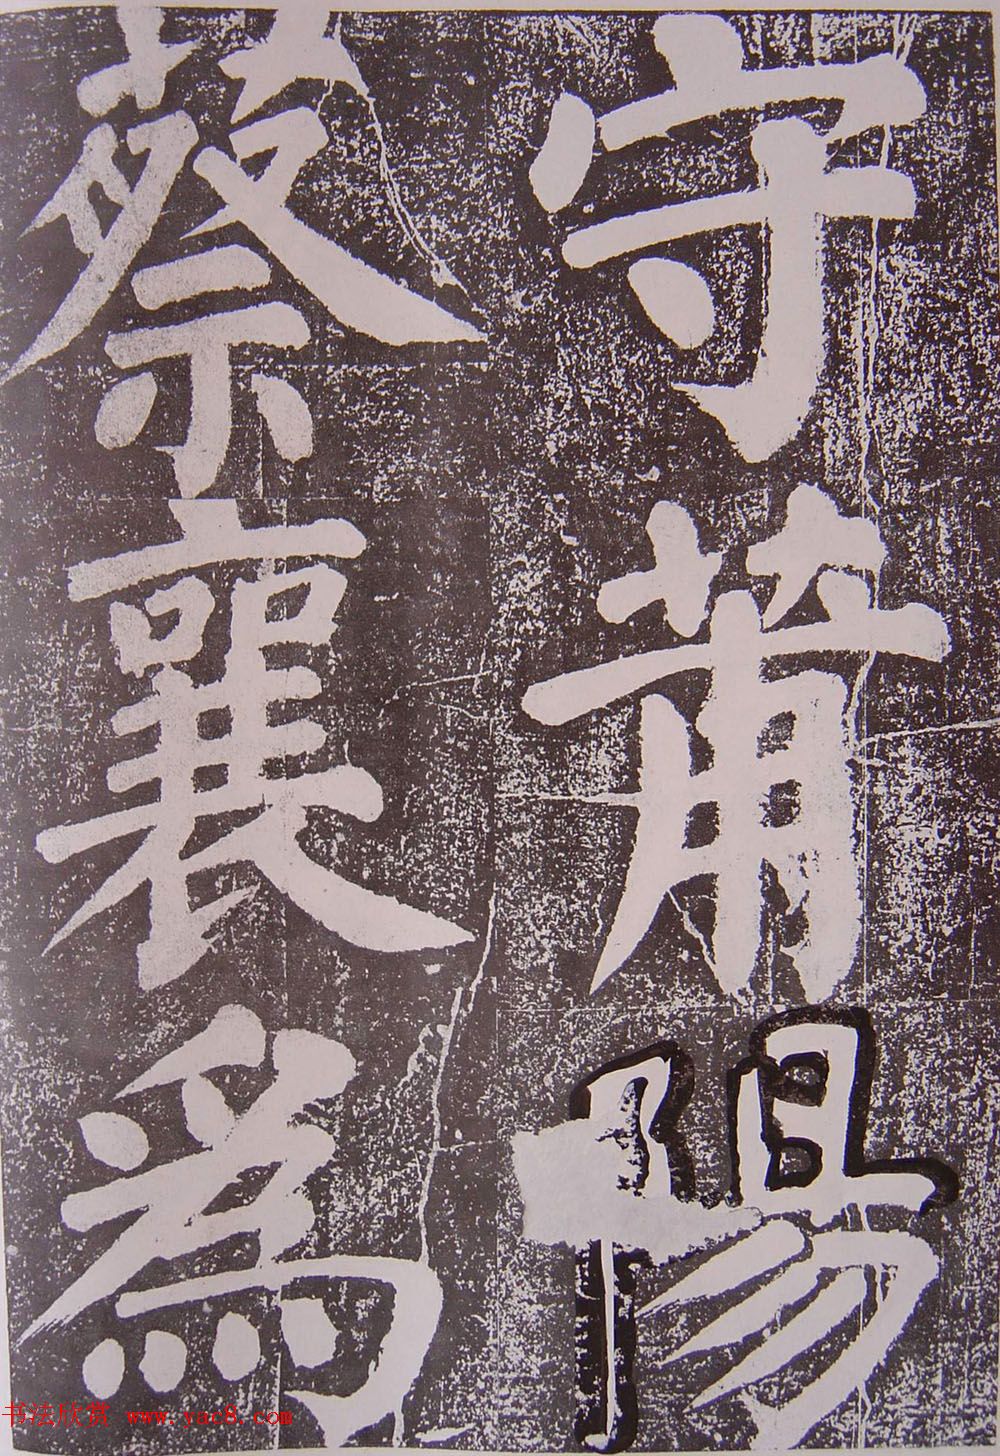 守莆陽
蔡襄為
书法欣赏 www.yac8.com